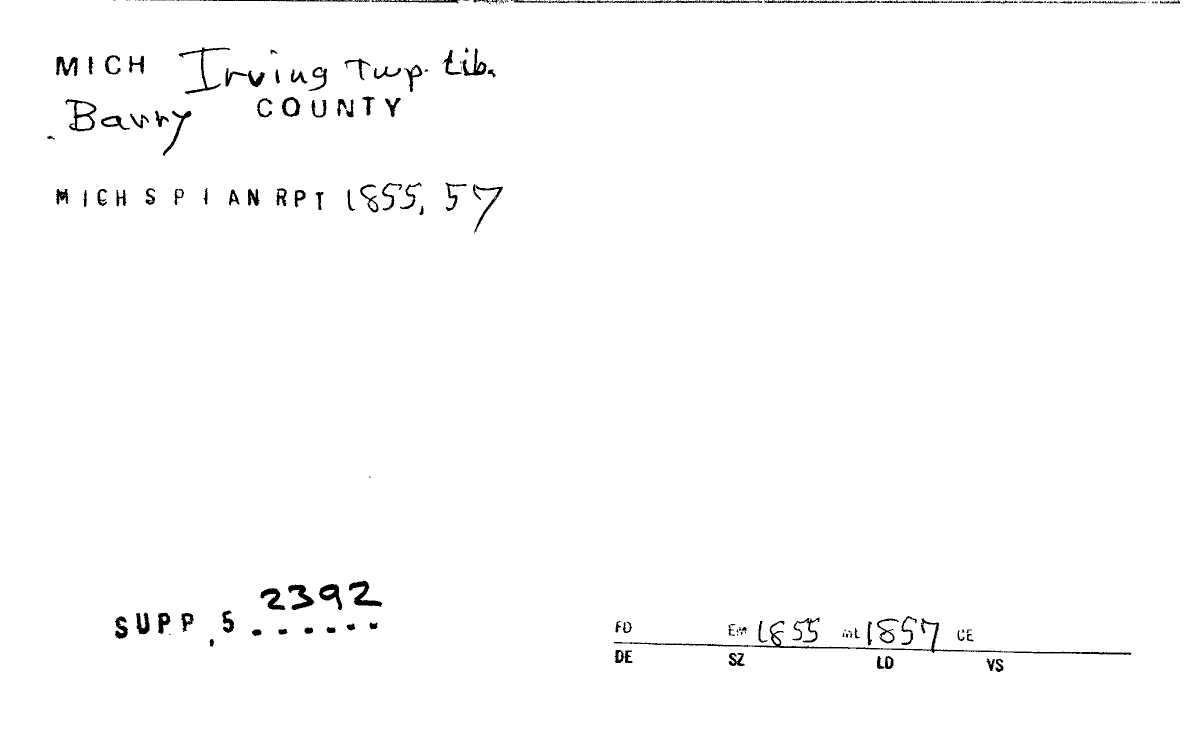 MICH Irving Twp. Lib.
Barry COUNTY
MICH S P I AN RPT 1855, 57
2392
SUPP .5 ......
FD EM 1855 ML 1857 CE
DE SZ LD VS